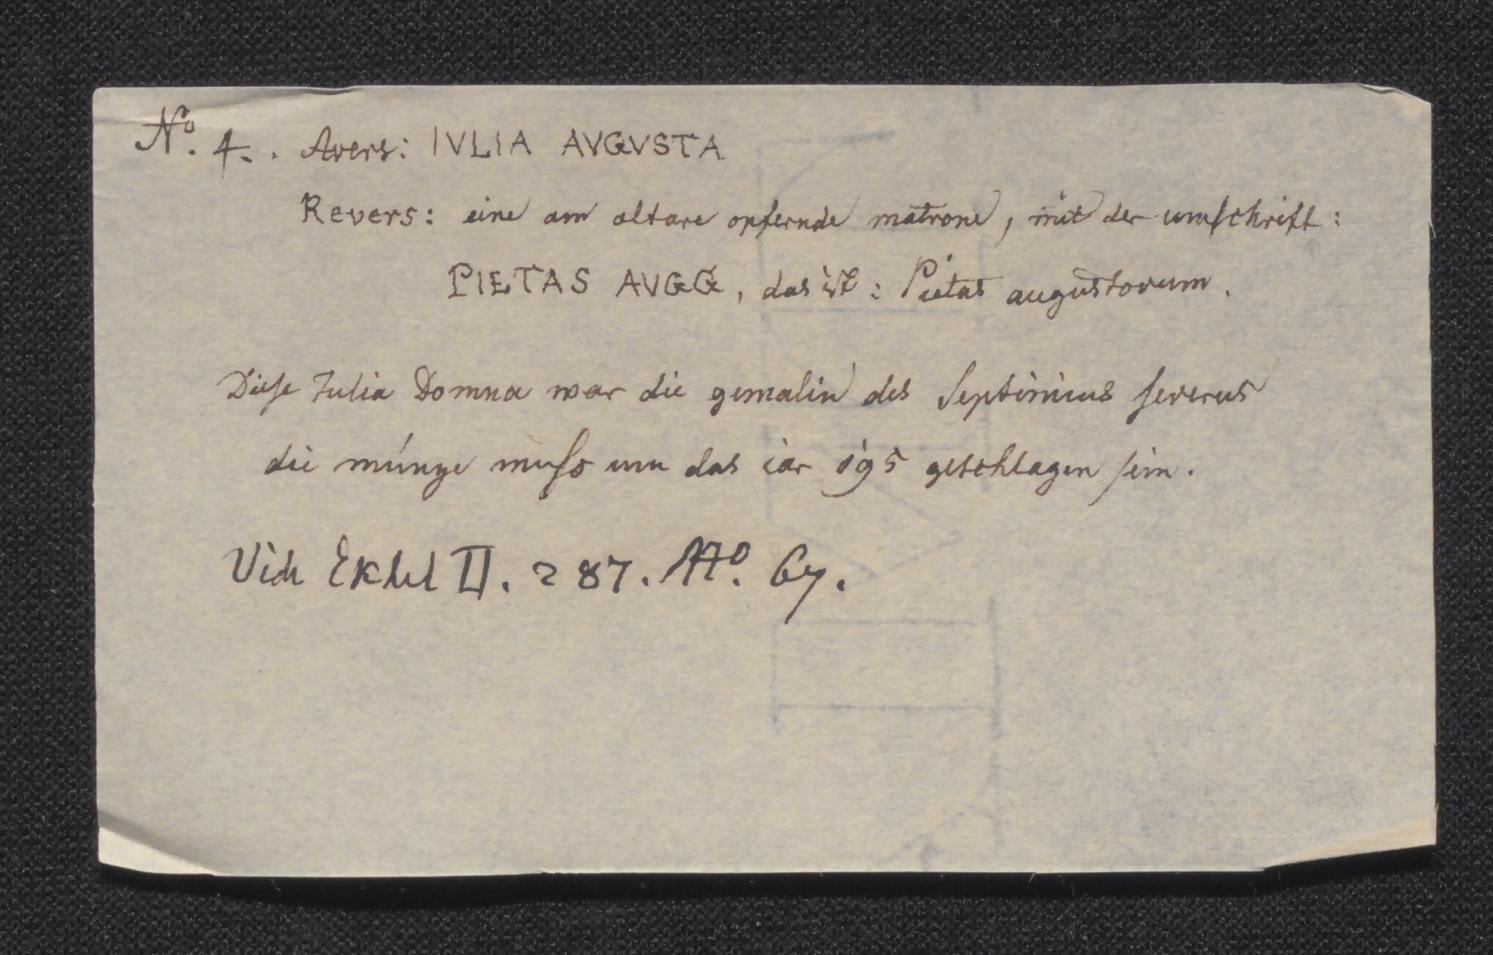 No. 4. Avers: IVLIA AVGVSTA
Revers: eine am altare opfernde matrone, mit der umschrift:
PIETAS AVGG, das ist: Pietas augustorum.
Diese Julia Domna war die gemalin des Septimius severus
die münze muſs um das iar 195 geschlagen sein.
Vide Ekhel II. 287. No. 67.